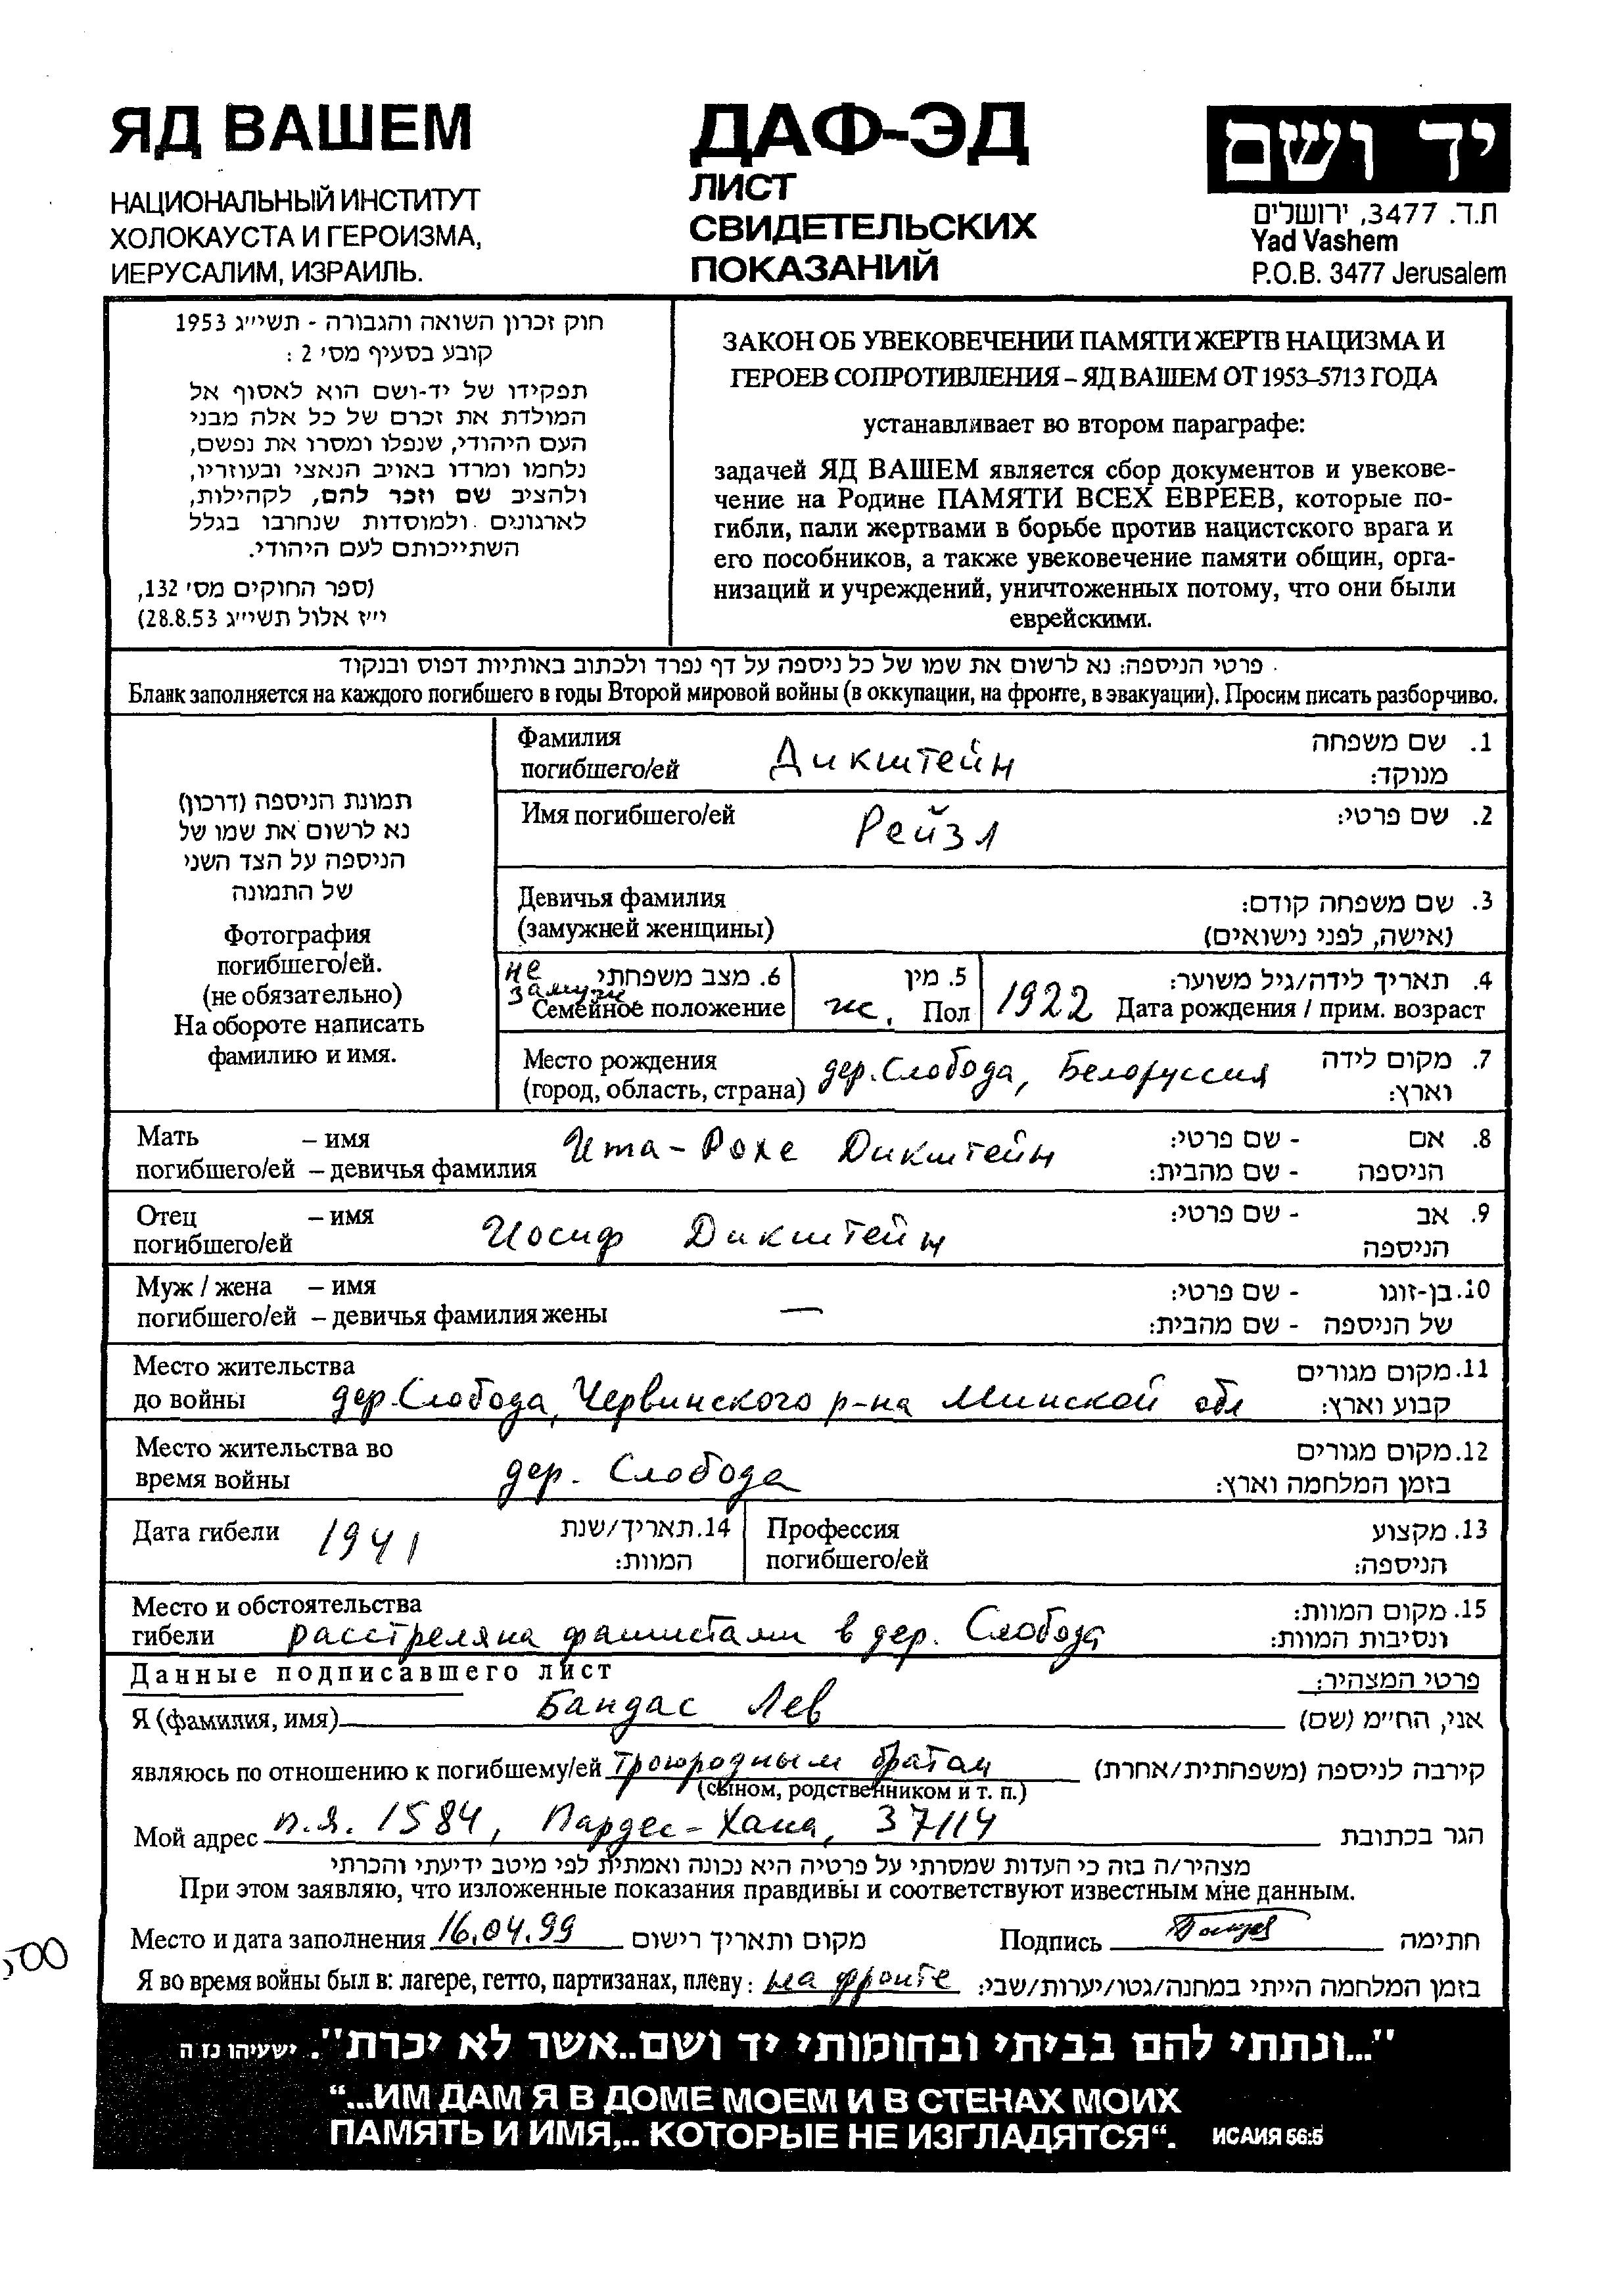 ЯД ВАШЕМ
НАЦИОНАЛЬНЫЙ ИНСТИТУТ
ХОЛОКАУСТА И ГЕРОИЗМА,
ИЕРУСАЛИМ, ИЗРАИЛЬ.
ДАФ-ЭД
ЛИСТ
СВИДЕТЕЛЬСКИХ
ПОКАЗАНИЙ
יד ושם
ת.ד. 3477, ירושלים
Yad Vashem
P.O.B. 3477 Jerusalem
חוק זכרון השואה והגבורה - תשי״ג 1953
קובע בסעיף מס׳ 2 :
תפקידו של יד-ושם הוא לאסוף אל
המולדת את זכרם של כל אלה מבני
העם היהודי, שנפלו ומסרו את נפשם,
נלחמו ומרדו באויב הנאצי ובעוזריו,
ולהציב שם וזכר להם, לקהילות,
לארגונים ולמוסדות שנחרבו בגלל
השתייכותם לעם היהודי.
(ספר החוקים מס׳ 132,
י״ז אלול תשי״ג 28.8.53)
ЗАКОН ОБ УВЕКОВЕЧЕНИИ ПАМЯТИ ЖЕРТВ НАЦИЗМА И
ГЕРОЕВ СОПРОТИВЛЕНИЯ – ЯД ВАШЕМ ОТ 1953–5713 ГОДА
устанавливает во втором параграфе:
задачей ЯД ВАШЕМ является сбор документов и увекове-
чение на Родине ПАМЯТИ ВСЕХ ЕВРЕЕВ, которые по-
гибли, пали жертвами в борьбе против нацистского врага и
его пособников, а также увековечение памяти общин, орга-
низаций и учреждений, уничтоженных потому, что они были
еврейскими.
פרטי הניספה: נא לרשום את שמו של כל ניספה על דף נפרד ולכתוב באותיות דפוס ובנקוד
Бланк заполняется на каждого погибшего в годы Второй мировой войны (в оккупации, на фронте, в эвакуации). Просим писать разборчиво.
תמונת הניספה (דרכון)
נא לרשום את שמו של
הניספה על הצד השני
של התמונה
Фотография
погибшего/ей.
(не обязательно)
На обороте написать
фамилию и имя.
Фамилия
погибшего/ей Дикштейн
1. שם משפחה
מנוקד:
Имя погибшего/ей Рейзл 2. שם פרטי:
Девичья фамилия
(замужней женщины)
3. שם משפחה קודם:
(אישה, לפני נישואים)
не замужем 6. מצב משפחתי
Семейное положение
5. מין
ж. Пол
4. תאריך לידה/גיל משוער:
1922 Дата рождения / прим. возраст
Место рождения
(город, область, страна) дер. Слобода, Белоруссия
7. מקום לידה
וארץ:
Мать – имя
погибшего/ей – девичья фамилия
Ита-Рохе Дикштейн
8. אם - שם פרטי:
הניספה - שם מהבית:
Отец – имя
погибшего/ей Иосиф Дикштейн
9. אב - שם פרטי:
הניספה
Муж / жена – имя
погибшего/ей – девичья фамилия жены —
10. בן-זוגו - שם פרטי:
של הניספה - שם מהבית:
Место жительства
до войны дер. Слобода, Червинского р-на Минской обл
11. מקום מגורים
קבוע וארץ:
Место жительства во
время войны дер. Слобода
12. מקום מגורים
בזמן המלחמה וארץ:
Дата гибели 1941 14. תאריך/שנת
המוות:
Профессия
погибшего/ей
13. מקצוע
הניספה:
Место и обстоятельства
гибели расстреляна фашистами в дер. Слобода
15. מקום המוות:
ונסיבות המוות:
Данные подписавшего лист פרטי המצהיר:
Я (фамилия, имя) Бандас Лев אני, הח״מ (שם)
являюсь по отношению к погибшему/ей троюродным братом קירבה לניספה (משפחתית/אחרת)
(сыном, родственником и т. п.)
Мой адрес п.я. 1584, Пардес-Хана, 37114 הגר בכתובת
מצהיר/ה בזה כי העדות שמסרתי על פרטיה היא נכונה ואמתית לפי מיטב ידיעתי והכרתי
При этом заявляю, что изложенные показания правдивы и соответствуют известным мне данным.
Место и дата заполнения 16.04.99 מקום ותאריך רישום Подпись חתימה
Я во время войны был в: лагере, гетто, партизанах, плену: на фронте בזמן המלחמה הייתי במחנה/גטו/יערות/שבי:
"...ונתתי להם בביתי ובחומותי יד ושם..אשר לא יכרת". ישעיהו נז ה
“...ИМ ДАМ Я В ДОМЕ МОЕМ И В СТЕНАХ МОИХ
ПАМЯТЬ И ИМЯ,.. КОТОРЫЕ НЕ ИЗГЛАДЯТСЯ“. ИСАИЯ 56:5